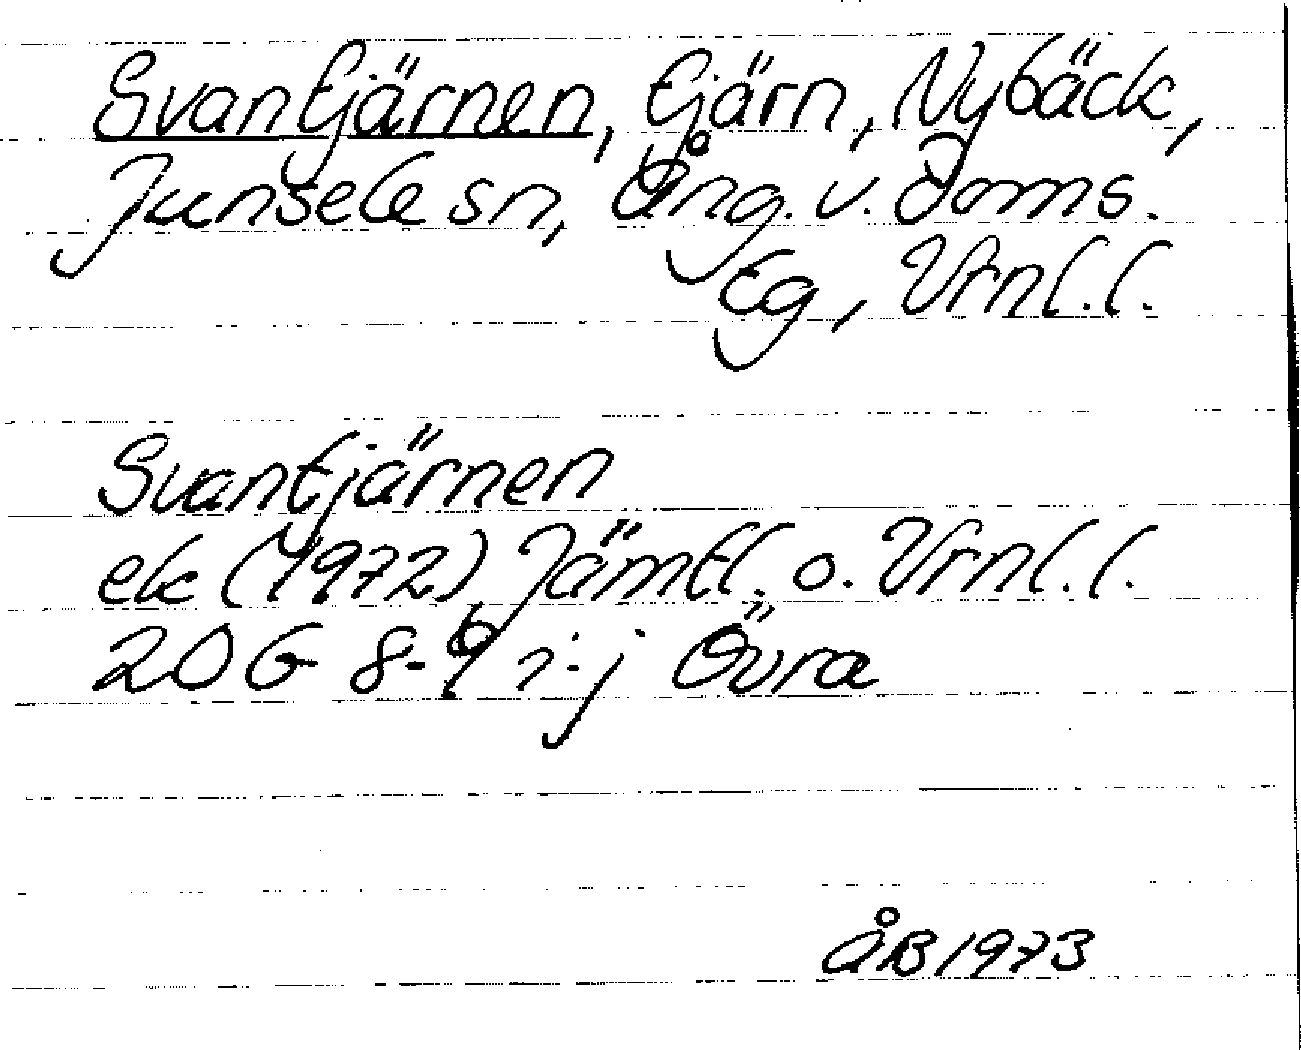 Svantjärnen, tjärn, Nybäck,
Junsele sn, Ång. v. doms.
Eg, Vrnl. l.
Svantjärnen
ek (1972) Jämtl. o. Vrnl. l.
20G 8-9 i-j Övra
ÅB 1973